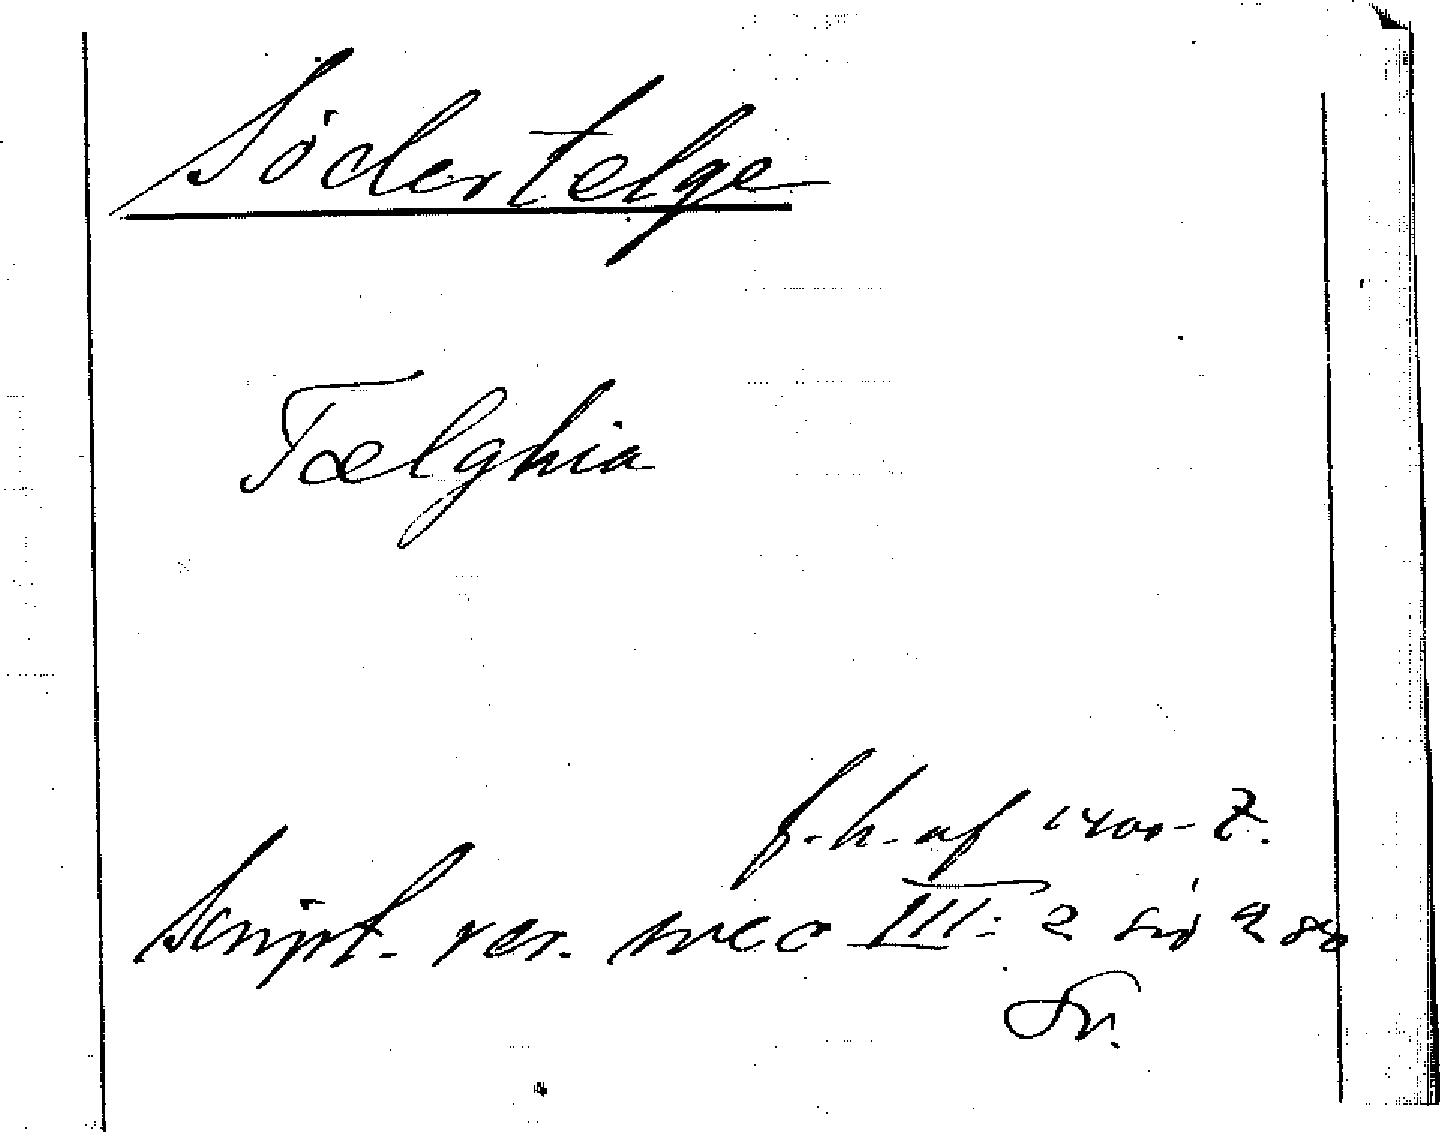 Södertelge
Tælghia
f. h. af 1400-t.
Script. rer. svec III: 2 sid 280